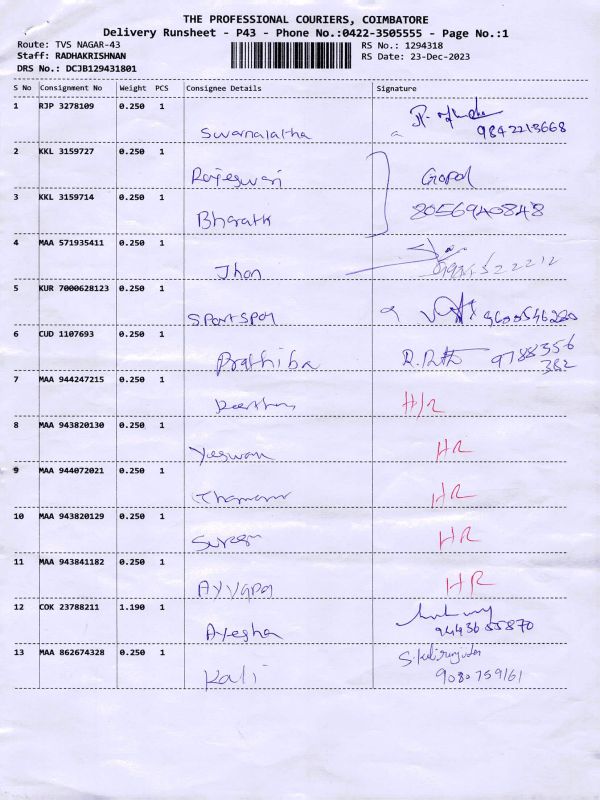 THE PROFESSIONAL COURIERS, COIMBATORE
Delivery Runsheet - P43 - Phone No.:0422-3505555 - Page No.:1
Route: TVS NAGAR-43 RS No.: 1294318
Staff: RADHAKRISHNAN RS Date: 23-Dec-2023
DRS No.: DCJB129431801
S No Consignment No Weight PCS Consignee Details Signature
1 RJP 3278109 0.250 1
Swarnalatha 9842213668
2 KKL 3159727 0.250 1
Rajeswari Gopal
3 KKL 3159714 0.250 1
Bharath 8056940848
4 MAA 571935411 0.250 1
Jhon
5 KUR 7000628123 0.250 1
Sportspoy 9600546220
6 CUD 1107693 0.250 1
Prathiba 9788356
382
7 MAA 944247215 0.250 1
H/R
8 MAA 943820130 0.250 1
Yuswan HR
9 MAA 944072021 0.250 1
HR
10 MAA 943820129 0.250 1
Suresh HR
11 MAA 943841182 0.250 1
Ayyapa HR
12 COK 23788211 1.190 1
Ayesha 9443655870
13 MAA 862674328 0.250 1
Kali 9080759161